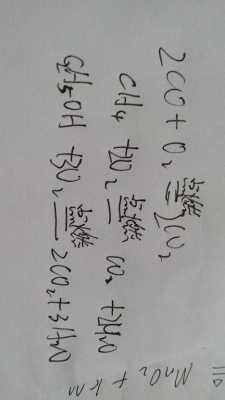 2CO + O₂ 点燃 = 2CO₂
CH₄ + 2O₂ 点燃 = CO₂ + 2H₂O
C₂H₅OH + 3O₂ 点燃 = 2CO₂ + 3H₂O
MnO₂ +